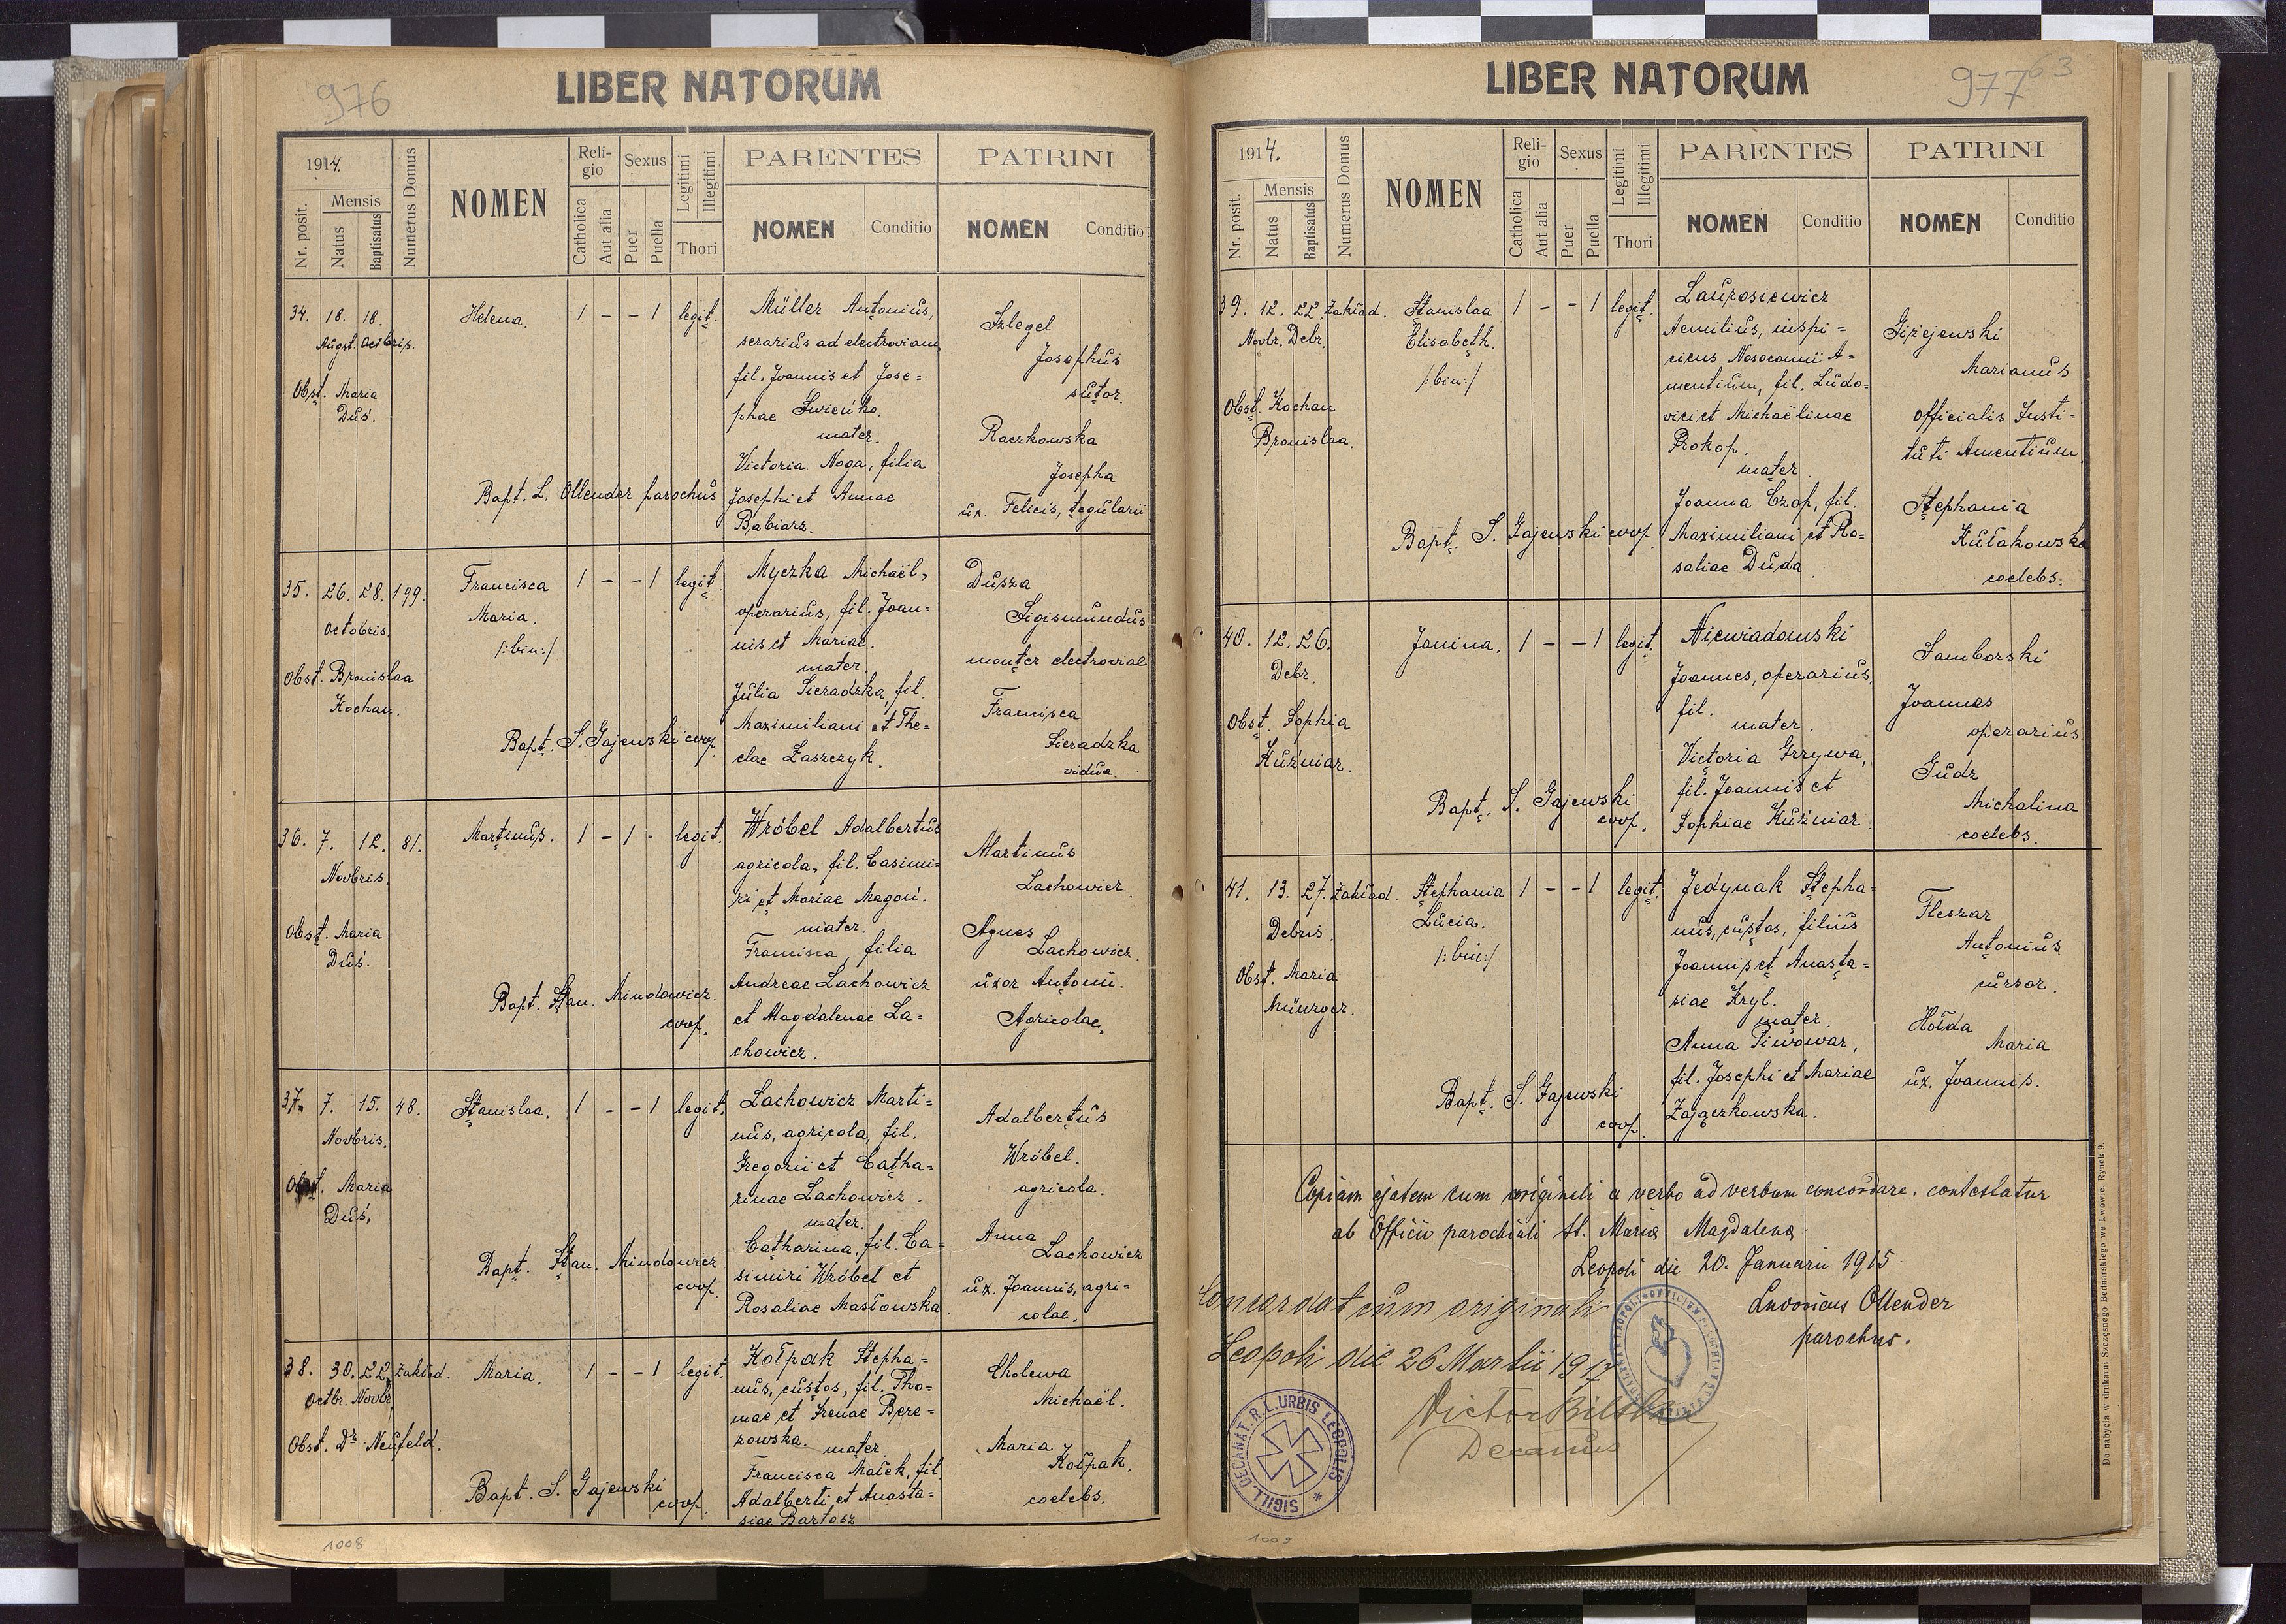 976
LIBER NATORUM
1914.
Nr. posit.
Mensis
Natus
Baptisatus
Numerus Domus
NOMEN
Religio
Catholica
Aut alia
Sexus
Puer
Puella
Legitimi
Illegitimi
Thori
PARENTES
NOMEN
Conditio
PATRINI
NOMEN
Conditio
34. 18. 18. Helena. 1 - - 1 legit.
Augst. Octbris.
Obst. Maria
Duś.
Bapt. L. Ollender parochus
Müller Antonius,
serarius ad electroviam
fil. Joannis et Jose=
phae Świeńko.
mater.
Victoria Noga, filia
Josephi et Annae
Babiarz.
Szlegel
Josephus
sutor.
Raczkowska
Josepha
ux. Felicis, tegularii
35. 26. 28. 199. Francisca 1 - - 1 legit.
Octobris.
Maria.
/:bin:/
Obst. Bronislaa
Kochan.
Bapt. S. Gajewski coop.
Myczka Michaël,
operarius, fil. Joan=
nis et Mariae.
mater.
Julia Sieradzka, fil.
Maximiliani et The=
clae Zaszczyk.
Dusza
Sigismundus
monter electroviae
Francisca
Sieradzka
vidua.
36. 7. 12. 81. Martinus. 1 - 1 - legit.
Novbris.
Obst. Maria
Duś.
Bapt. Stan. Mindowicz.
coop.
Wróbel Adalbertus
agricola, fil. Casimi=
ri et Mariae Magoń.
mater.
Francisca, filia
Andreae Lachowicz
et Magdalenae La=
chowicz.
Martinus
Lachowicz.
Agnes
Lachowicz.
uxor Antonii.
Agricolae.
37. 7. 15. 48. Stanislaa. 1 - - 1 legit.
Novbris.
Obst. Maria
Duś.
Bapt. Stan. Mindowicz
coop.
Lachowicz Marti=
nus, agricola, fil.
Gregorii et Catha=
rinae Lachowicz.
mater.
Catharina, fil. Ca=
simiri Wróbel et
Rosaliae Masłowska.
Adalbertus
Wróbel.
agricola.
Anna
Lachowicz
ux. Joannis, agri=
colae.
38. 30. 22. Zakład. Maria. 1 - - 1 legit.
Octbr. Novbr.
Obst. Dr Neufeld.
Bapt. S. Gajewski
coop.
Kołpak Stepha=
nus, custos, fil. Tho=
mae et Irenae Bere=
zowska.
mater.
Francisca Małek, fil.
Adalberti et Anasta=
siae Bartosz
Cholewa
Michaël.
Maria
Kołpak.
coelebs.
1008
977
63
LIBER NATORUM
1914.
Nr. posit.
Mensis
Natus
Baptisatus
Numerus Domus
NOMEN
Religio
Catholica
Aut alia
Sexus
Puer
Puella
Legitimi
Illegitimi
Thori
PARENTES
NOMEN
Conditio
PATRINI
NOMEN
Conditio
39. 12. 22. Zakład. Stanislaa 1 - - 1 legit.
Novbr. Debr.
Elisabeth.
/:bin:/
Obst. Kochan
Bronislaa.
Bapt. S. Gajewski coop.
Laurosiewicz
Aemilius, inspi=
ciens Nosocomii A=
mentium, fil. Ludo=
vici et Michaëlinae
Prokop.
mater.
Joanna Czop, fil.
Maximiliani et Ro=
saliae Duda.
Giżejewski
Marianus
officialis Insti=
tuti Amentium.
Stephania
Kułakowska
coelebs.
40. 12. 26. Janina. 1 - - 1 legit.
Debr.
Obst. Sophia
Kuźniar.
Bapt. S. Gajewski
coop.
Niewiadomski
Joannes, operarius,
fil.
mater.
Victoria Grzywa,
fil. Joannis et
Sophiae Kuźniar.
Samborski
Joannes
operarius.
Gudz
Michalina
coelebs.
41. 13. 27. Zakład. Stephania 1 - - 1 legit.
Debris.
Lucia.
/:bin:/
Obst. Maria
Münzger.
Bapt. S. Gajewski
coop.
Jedynak Stepha=
nus, custos, filius
Joannis et Anasta=
siae Kryl.
mater.
Anna Piwowar,
fil. Josephi et Mariae
Zajączkowska.
Fleszar
Antonius.
cursor.
Hołda
Maria
ux. Joannis.
Copiam ejatem cum originali a verbo ad verbum concordare, contestatur
ab Officio parochiali St. Mariae Magdalena
Leopoli die 20. Januarii 1915
Ludovicus Ollender
parochus.
Concordat cum originali
Leopoli die 26 Martii 1917
Victor Bilski
Decanus
SIGILL. DECANAT. R. L. URBIS LEOPOLIS
Do nabycia w drukarni Szczęsnego Bednarskiego we Lwowie, Rynek 9.
1009